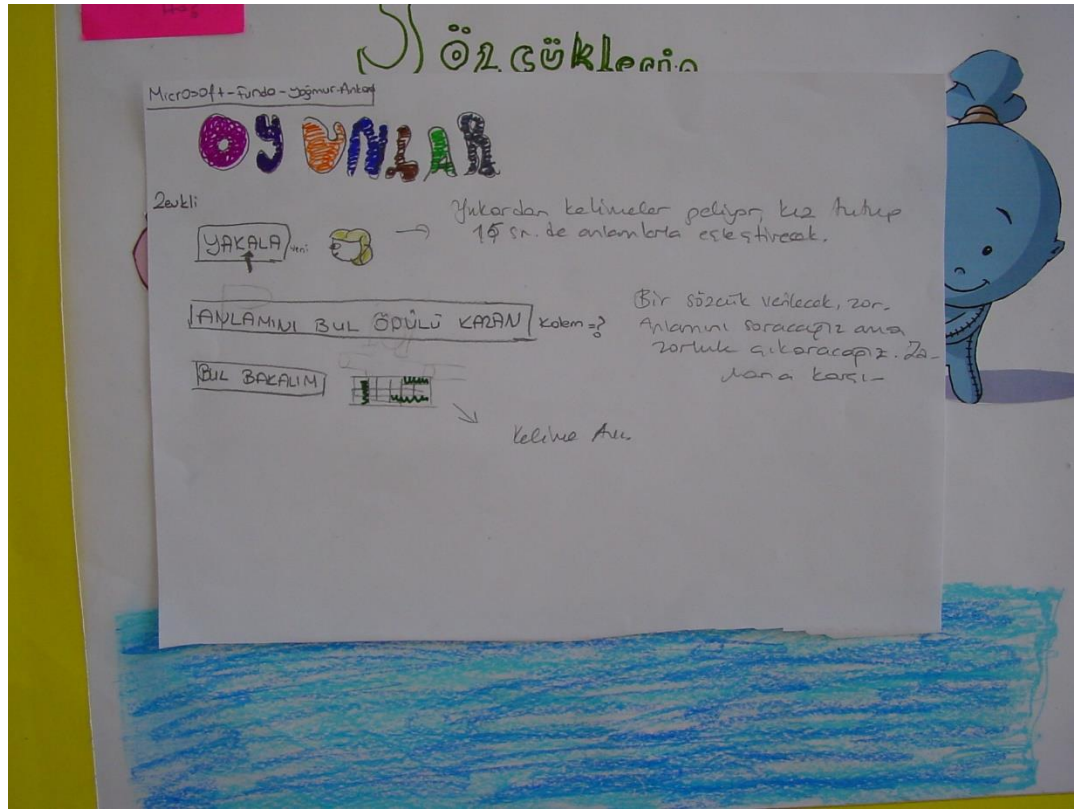 Sözcüklerin
Microsoft-Funda-Yağmur-Ankara
OYUNLAR
Zevkli
YAKALA yeni → Yukardan kelimeler geliyor, kız tutup
15 sn. de anlamlarla eşleştirecek.
ANLAMINI BUL ÖDÜLÜ KAZAN kalem=?
Bir sözcük verilecek, zor.
Anlamını soracağız ama
zorluk çıkaracağız. Za-
mana karşı-
BUL BAKALIM
Kelime Avı.